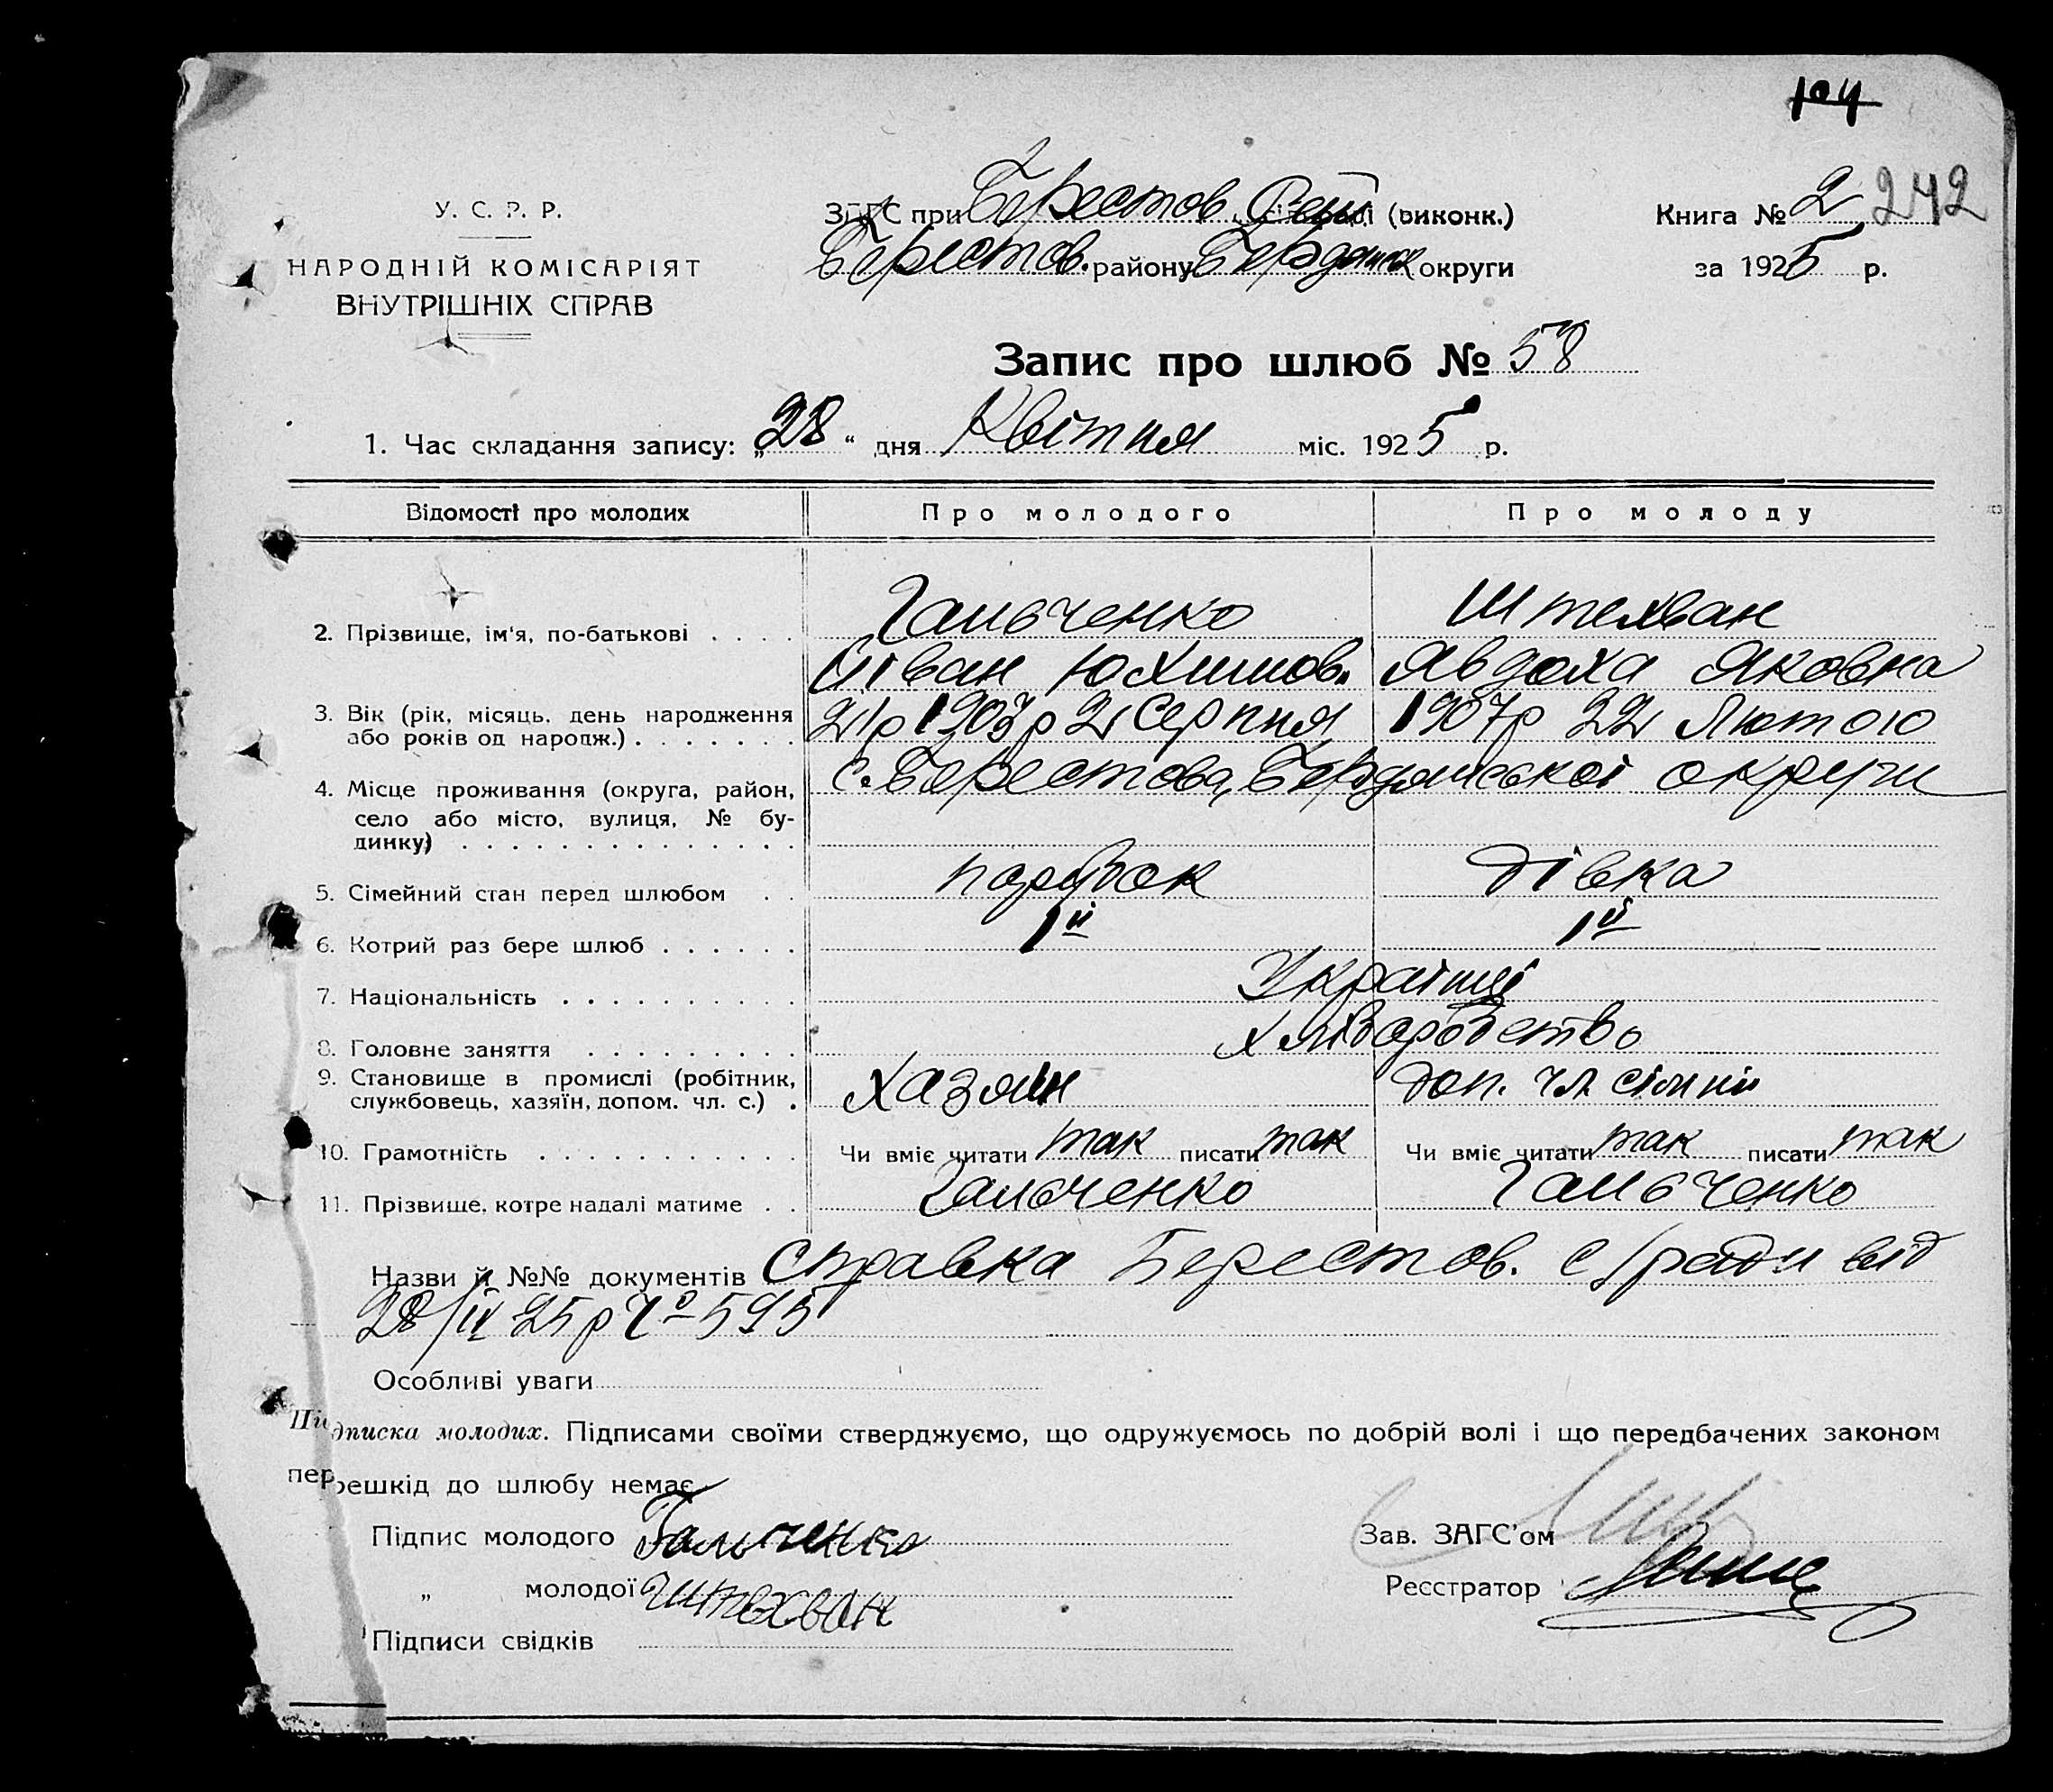 104
У. С. Р. Р.
НАРОДНІЙ КОМІСАРІЯТ
ВНУТРІШНІХ СПРАВ
ЗАГС при Берестов. (виконк.)
Берестов. району Бердянск округи
Книга № 2 242
за 1925 р.
Запис про шлюб № 58
1. Час складання запису: „28“ дня Квітня міс. 1925 р.
Відомості про молодих Про молодого Про молоду
2. Прізвище, ім'я, по-батькові . . . . Гальченко Штехван
Іван Юхимов. Явдоха Яковна
3. Вік (рік, місяць, день народження 21р 1903р 2 Серпня 1907р 22 Лютого
або років од народж.) . . . . . . .
4. Місце проживання (округа, район, с. Берестова, Бердянської округи
село або місто, вулиця, № бу-
динку) . . . . . . . . . . . . . .
5. Сімейний стан перед шлюбом . . парубок дівка
6. Котрий раз бере шлюб . . . . . . 1й 1й
7. Національність . . . . . . . . . . Українці
8. Головне заняття . . . . . . . . . Хліборобство
9. Становище в промислі (робітник, хазяїн доп. чл. сімїи
службовець, хазяїн, допом. чл. с.) .
10. Грамотність . . . . . . . . . . . Чи вміє читати так писати так Чи вміє читати так писати так
11. Прізвище, котре надалі матиме . . Гальченко Гальченко
Назви й №№ документів Справка Берестов. с/ради від
28/IV 25р Чо 595
Особливі уваги
Підписка молодих. Підписами своїми стверджуємо, що одружуємось по добрій волі і що передбачених законом
перешкід до шлюбу немає.
Підпис молодого Гальченко
„ молодої Штехван
Підписи свідків
Зав. ЗАГС'ом
Реєстратор